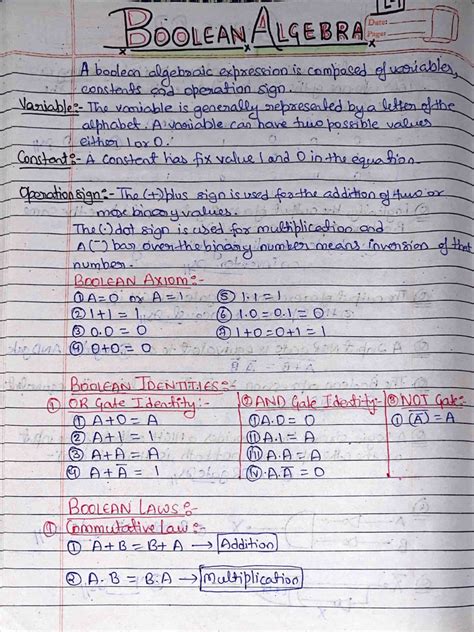 L-1
BOOLEAN ALGEBRA
Date:
Page:
A boolean algebraic expression is composed of variables,
constants and operation sign.
Variable:- The variable is generally represented by a letter of the
alphabet. A variable can have two possible values
either 1 or 0.
Constant:- A constant has fix value 1 and 0 in the equation.
Operation sign:- The (+) plus sign is used for the addition of two or
more binary values.
The (·) dot sign is used for multiplication and
A (‾) bar over the binary number means inversion of that
number.
BOOLEAN AXIOM:-
① A=0 or A=1
② 1+1 = 1
③ 0.0 = 0
④ 0+0 = 0
⑤ 1.1 = 1
⑥ 1.0 = 0.1 = 0
⑦ 1+0 = 0+1 = 1
BOOLEAN IDENTITIES:-
① OR Gate Identity:-
① A+0 = A
② A+1 = 1
③ A+A = A
④ A+A̅ = 1
② AND Gate Identity:-
① A.0 = 0
② A.1 = A
③ A.A = A
④ A.A̅ = 0
③ NOT Gate:-
① (A̅) = A
BOOLEAN LAWS:-
① Commutative Law:-
① A+B = B+A → Addition
② A.B = B.A → Multiplication